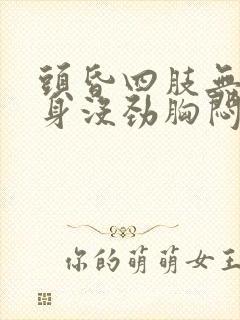 頭昏四肢無
身沒勁胸悶
你的萌萌女王